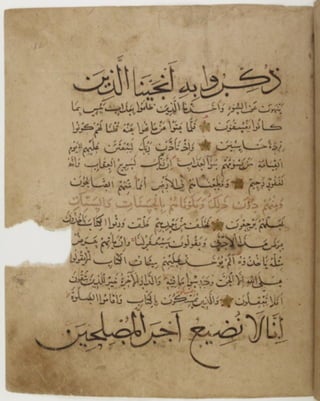 ذكروا به أنجينا الذين
ينهون عن السوء وأخذنا الذين ظلموا بعذاب بئيس بما
كانوا يفسقون فلما عتوا عن ما نهوا عنه قلنا لهم كونوا
قردة خاسئين وإذ تأذن ربك ليبعثن عليهم إلى يوم
القيامة من يسومهم سوء العذاب إن ربك لسريع العقاب وإنه
لغفور رحيم وقطعناهم في الأرض أمما منهم الصالحون
ومنهم دون ذلك وبلوناهم بالحسنات والسيئات
لعلهم يرجعون فخلف من بعدهم خلف ورثوا الكتاب يأخذون
عرض هذا الأدنى ويقولون سيغفر لنا وإن يأتهم عرض
مثله يأخذوه ألم يؤخذ عليهم ميثاق الكتاب أن لا يقولوا
على الله إلا الحق ودرسوا ما فيه والدار الآخرة خير للذين يتقون
أفلا تعقلون والذين يمسكون بالكتاب وأقاموا الصلوة
إنا لا نضيع أجر المصلحين